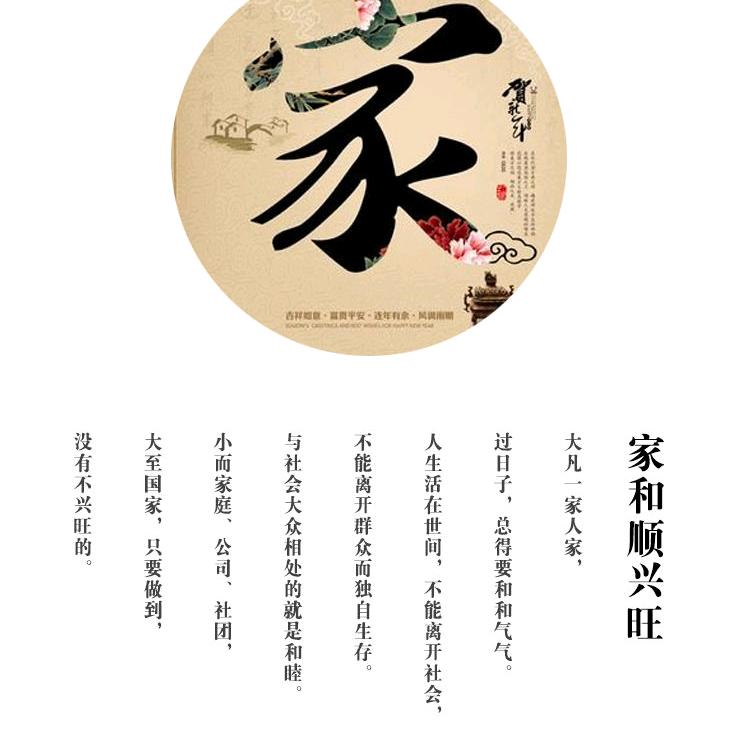 家
贺新年
吉祥如意·富贵平安·连年有余·风调雨顺
SEASON'S GREETINGS AND BEST WISHES FOR HAPPY NEW YEAR
家和顺兴旺
大凡一家人家，
过日子，总得要和和气气。
人生活在世间，不能离开社会，
不能离开群众而独自生存。
与社会大众相处的就是和睦。
小而家庭、公司、社团，
大至国家，只要做到，
没有不兴旺的。